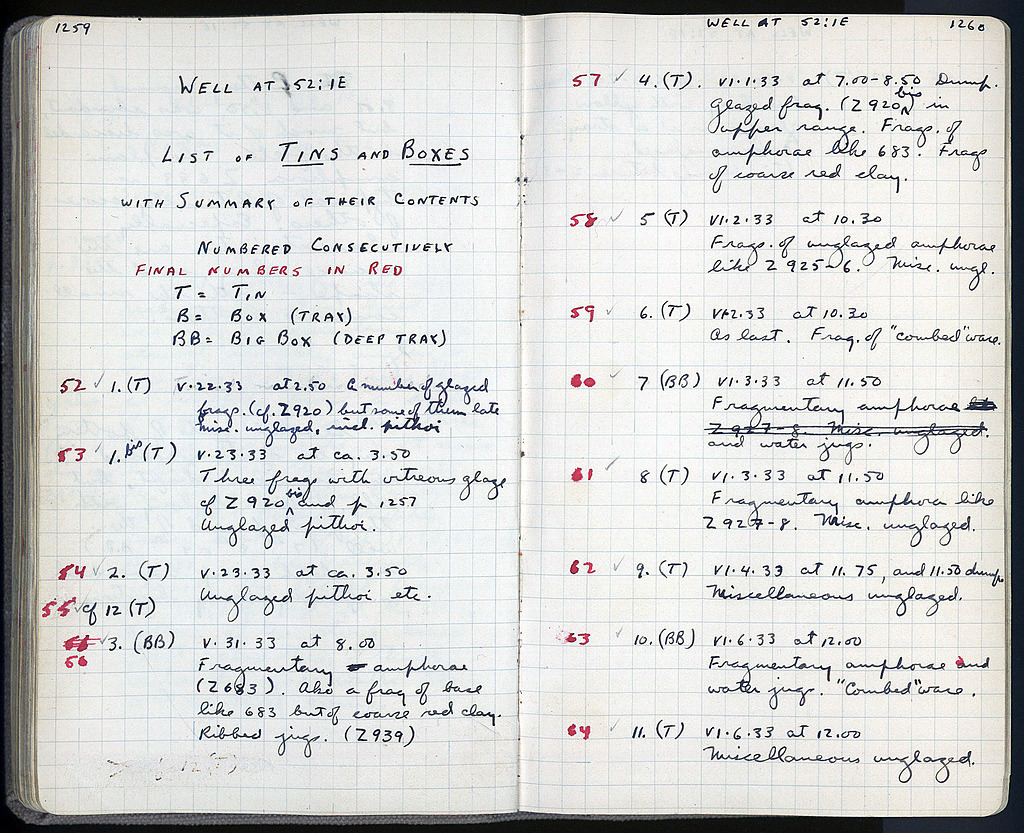 1259
WELL AT 52:1E
LIST OF TINS AND BOXES
WITH SUMMARY OF THEIR CONTENTS
NUMBERED CONSECUTIVELY
FINAL NUMBERS IN RED
T = TIN
B = BOX (TRAY)
BB = BIG BOX (DEEP TRAY)
52 ✓ 1. (T) V.22.33 at 2.50 A number of glazed
frags. (cf. Z920) but some of them late
misc. unglazed, incl. pithoi
53 ✓ 1. bis (T) V.23.33 at ca. 3.50
Three frags with vitreous glaze
cf Z 920 bis and p 1257
Unglazed pithoi.
54 ✓ 2. (T) V.23.33 at ca. 3.50
Unglazed pithoi etc.
55 ✓ cf 12 (T)
✓ 3. (BB) V.31.33 at 8.00
56
Fragmentary amphorae
(Z683). Also a frag of base
like 683 but of coarse red clay.
Ribbed jugs. (Z939)
12 (T)
WELL AT 52:1E 1260
57 ✓ 4. (T). VI.1.33 at 7.00-8.50 Dump.
Glazed frag. (Z 920 bis) in
upper range. Frags. of
amphorae like 683. Frags
of coarse red clay.
58 ✓ 5 (T) VI.2.33 at 10.30
Frags. of unglazed amphorae
like Z 925-6. Misc. ungl.
59 ✓ 6. (T) VI.2.33 at 10.30
As last. Frag. of "combed" ware.
60 ✓ 7 (BB) VI.3.33 at 11.50
Fragmentary amphorae
Z 927-8. Misc. unglazed.
and water jugs.
61 ✓ 8 (T) VI.3.33 at 11.50
Fragmentary amphora like
Z 927-8. Misc. unglazed.
62 ✓ 9. (T) VI.4.33 at 11.75, and 11.50 dump
Miscellaneous unglazed.
63 ✓ 10. (BB) VI.6.33 at 12.00
Fragmentary amphorae and
water jugs. "Combed" ware.
64 ✓ 11. (T) VI.6.33 at 12.00
Miscellaneous unglazed.